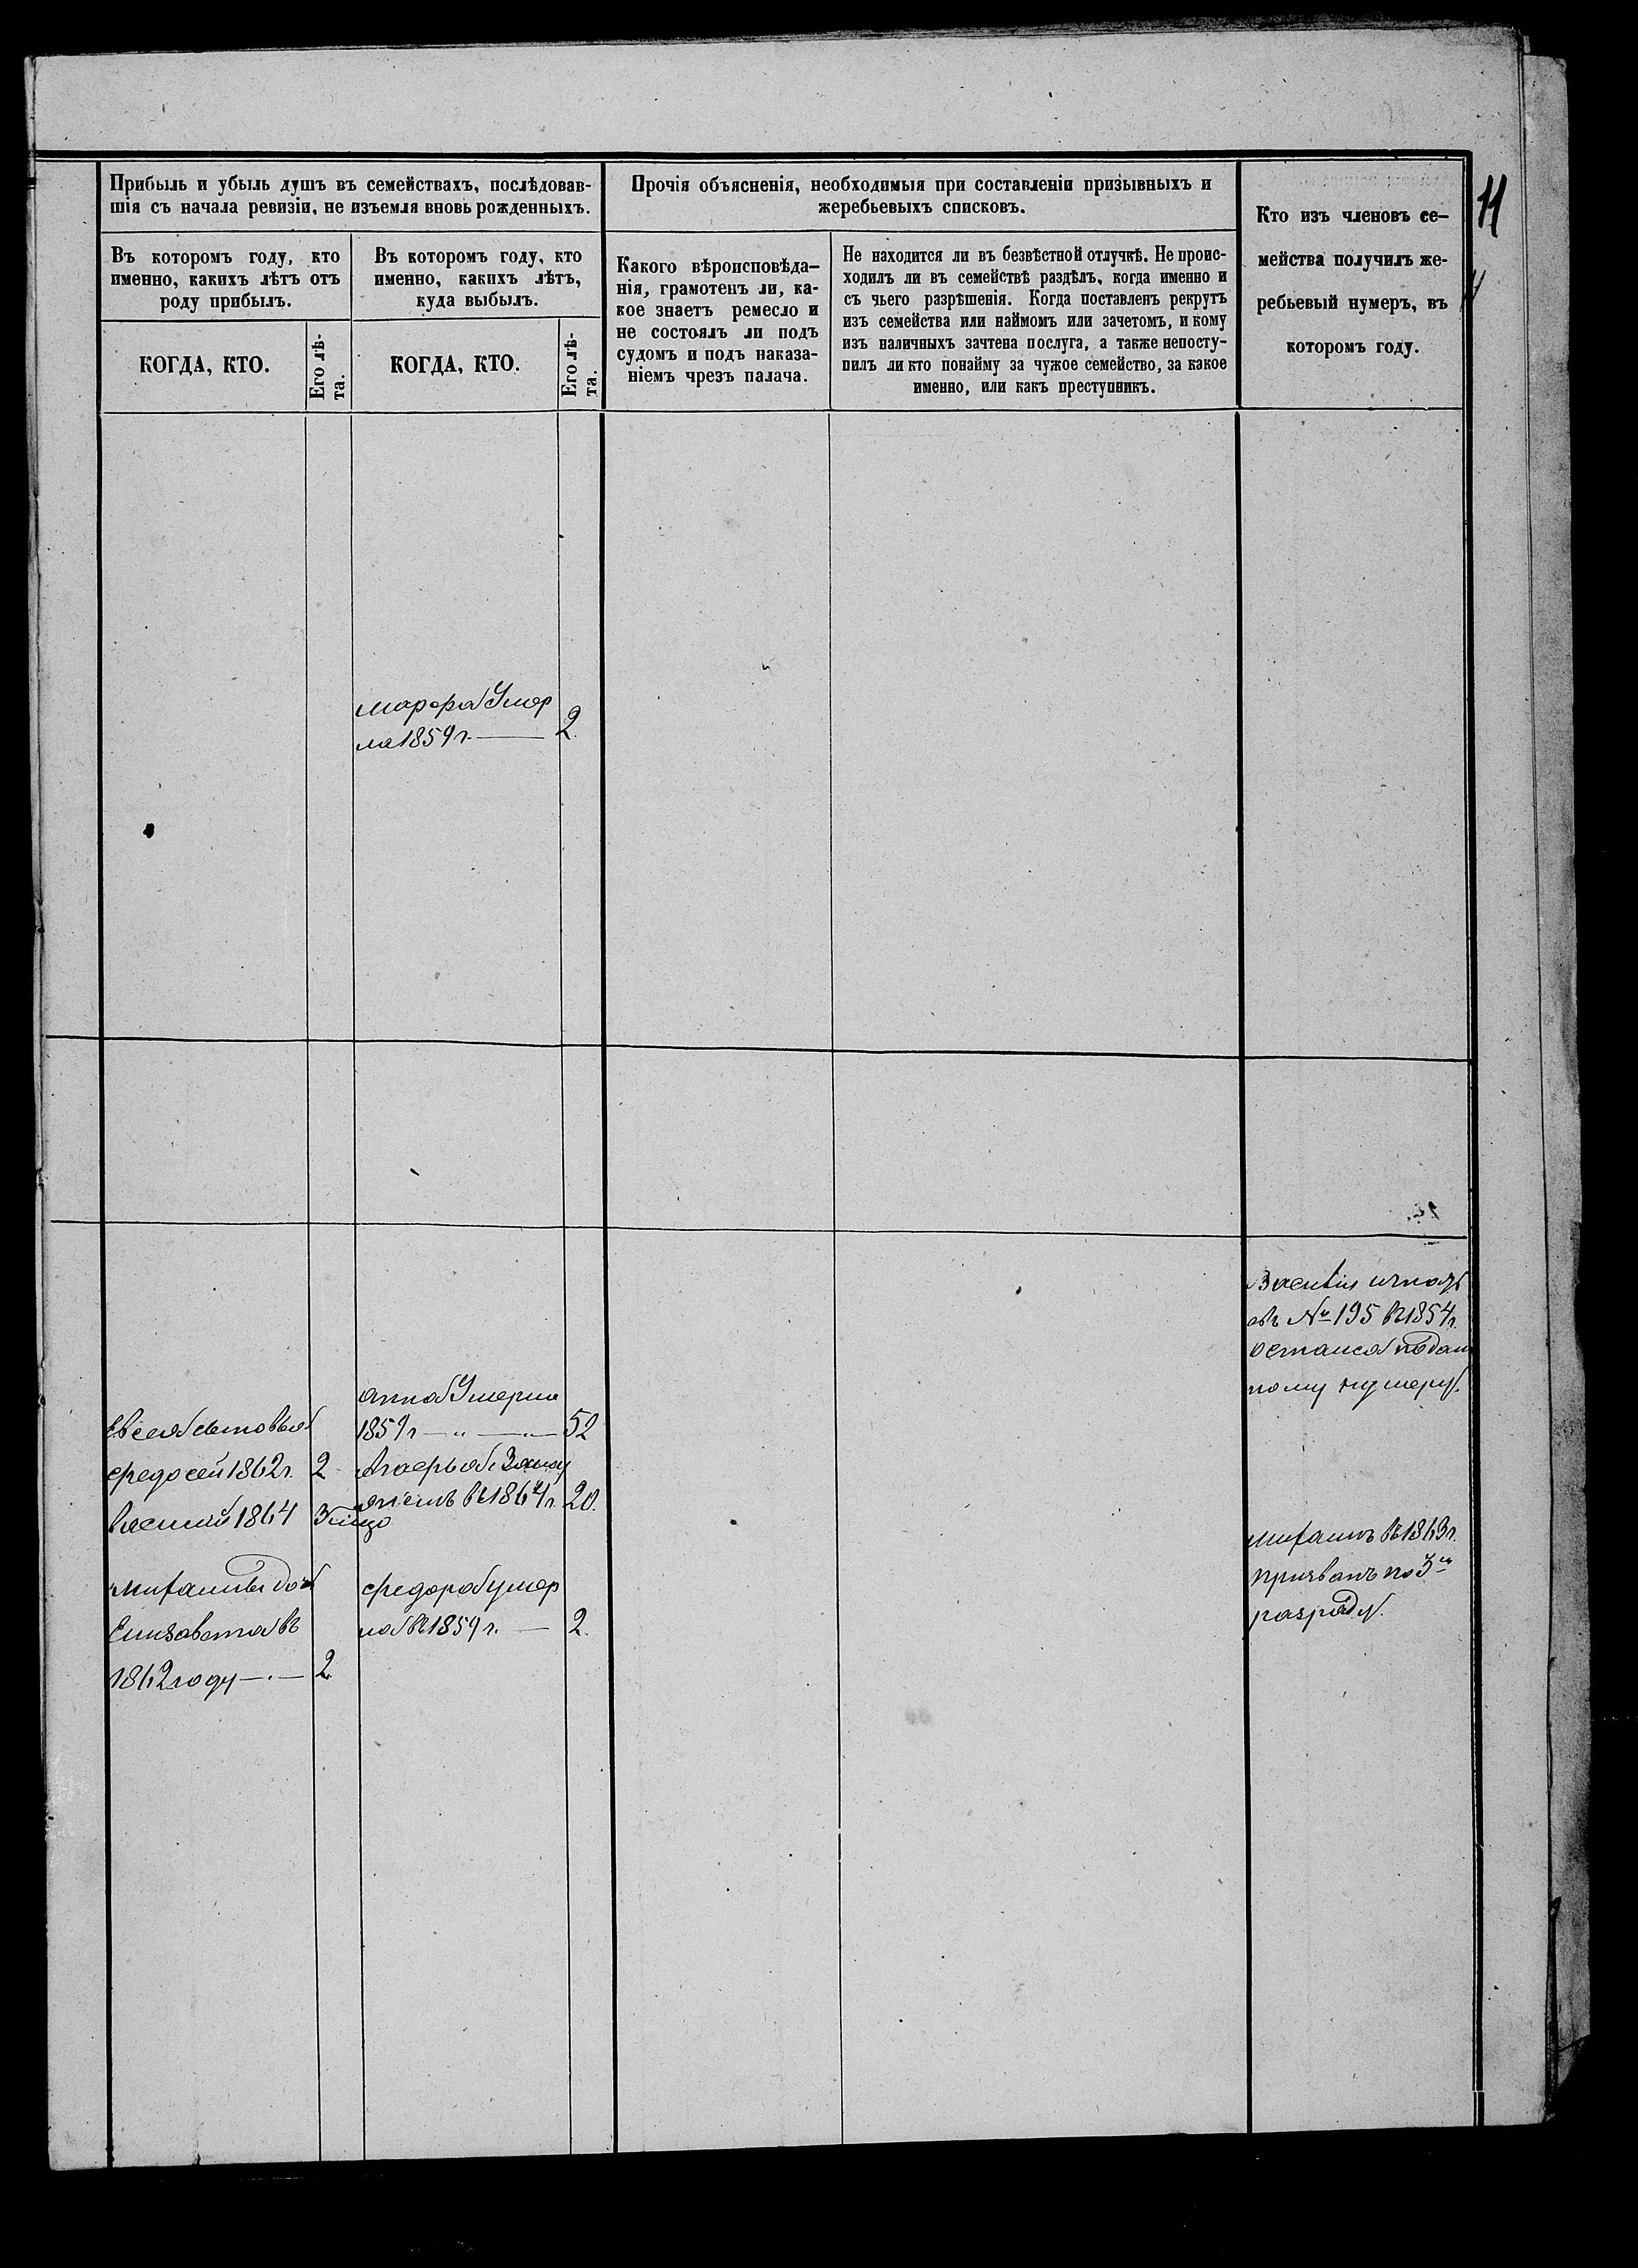 11
Прибыль и убыль душъ въ семействахъ, послѣдовав-
шія съ начала ревизіи, не изъемля вновь рожденныхъ.
Въ которомъ году, кто
именно, какихъ лѣтъ отъ
роду прибылъ.
КОГДА, КТО.
Его лѣ-
та.
Въ которомъ году, кто
именно, какихъ лѣтъ,
куда выбылъ.
КОГДА, КТО.
Его лѣ-
та.
Прочія объясненія, необходимыя при составленіи призывныхъ и
жеребьевыхъ списковъ.
Какого вѣроисповѣда-
нія, грамотенъ ли, ка-
кое знаетъ ремесло и
не состоялъ ли подъ
судомъ и подъ наказа-
ніемъ чрезъ палача.
Не находится ли въ безвѣстной отлучкѣ. Не проис-
ходилъ ли въ семействѣ раздѣлъ, когда именно и
съ чьего разрѣшенія. Когда поставленъ рекрутъ
изъ семейства или наймомъ или зачетомъ, и кому
изъ наличныхъ зачтена послуга, а также непосту-
пилъ ли кто понайму за чужое семейство, за какое
именно, или какъ преступникъ.
Кто изъ членовъ се-
мейства получилъ же-
ребьевый нумеръ, въ
которомъ году.
Марфа Умер
ла 1859 г. 2.
№ 195 въ 1854 г.
остался по дан
ному нумеру.
Анна Умерла
1859 г 52
Агафья Заму
въ 1864 г. 20.
Федора умер
ла въ 1859 г. 2.
Евсея сыновья
Федосей 1862 г. 2
Василий 1864
дочь
Елизавета въ
1862 году 2.
въ 1863 г.
призванъ по 3му
разряду.